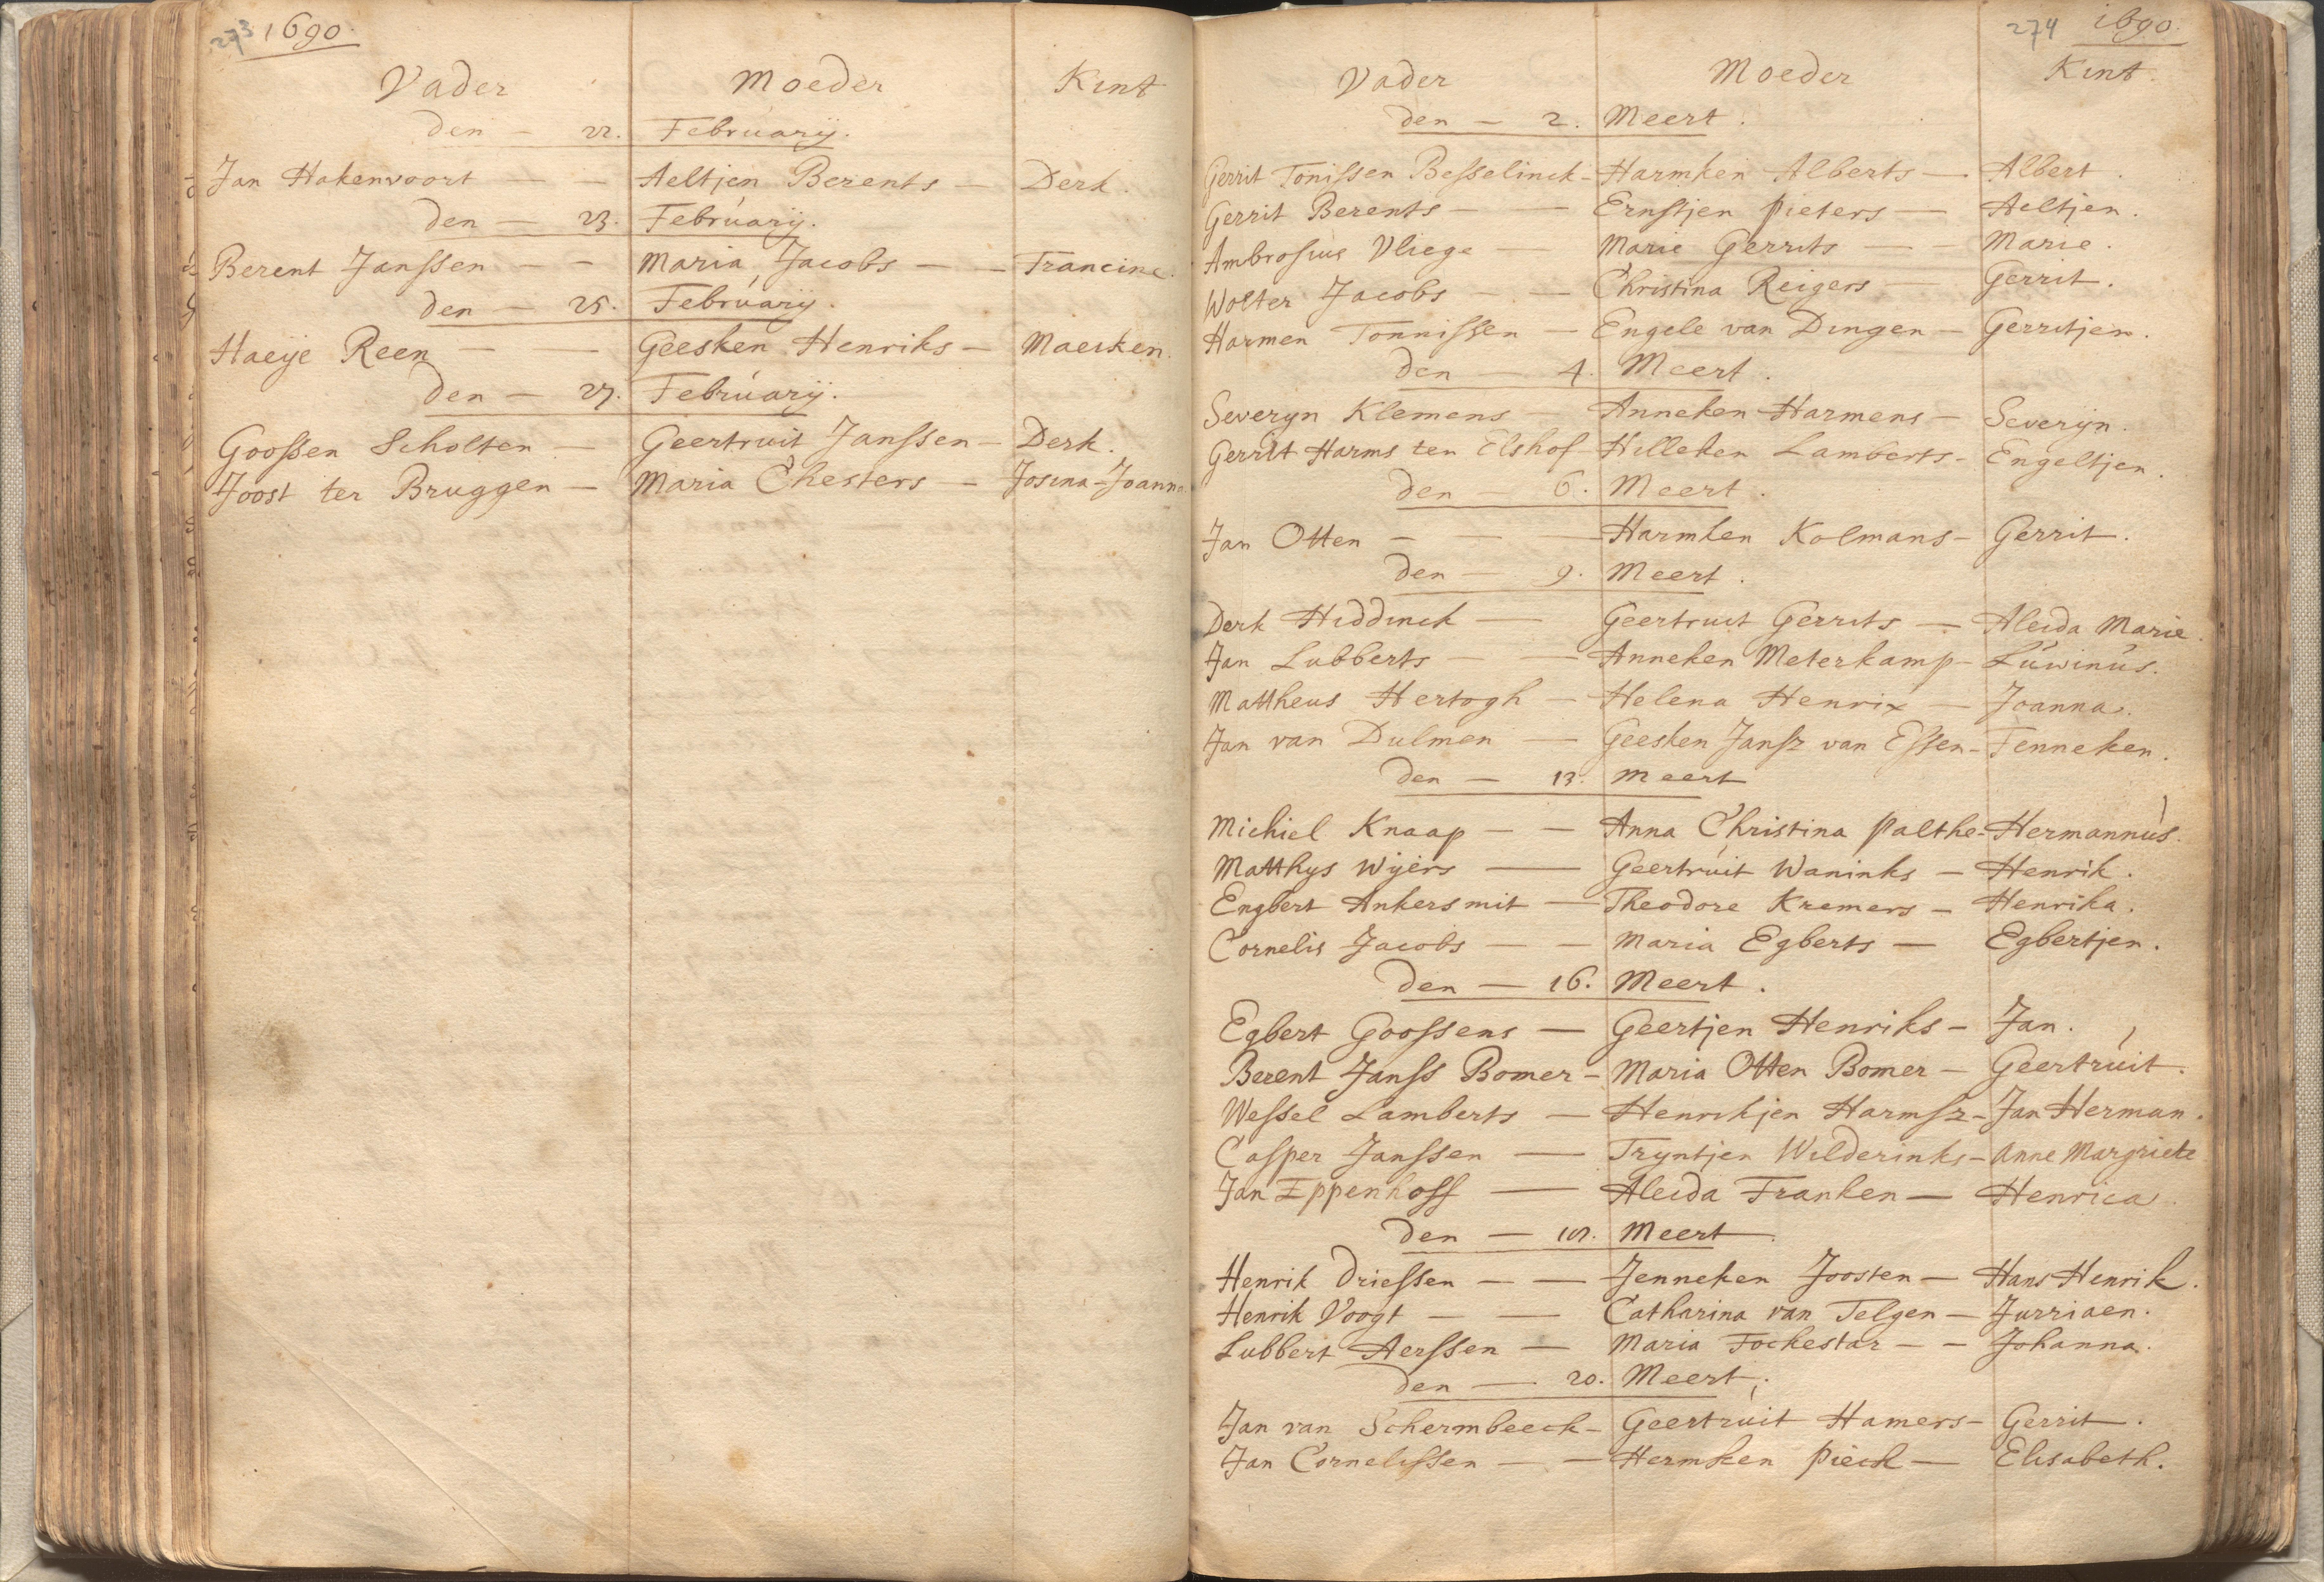 273 1690.
Vader Moeder Kint
den - 22. Februarij.
Jan Hakenvoort - - Aeltjen Berents - Derk.
den - 23. Februarij.
Berent Janssen - - Maria Jacobs - - Francine.
den - 25. Februarij.
Haeije Reen - - Geesken Henriks - Maerken.
den - 27. Februarij.
Goossen Scholten - Geertruit Janssen - Derk.
Joost ter Bruggen - Maria Chesters - Josina-Joanna
274 1690.
Vader Moeder Kint.
den - 2. Meert.
Gerrit Tonissen Besselinck - Harmken Alberts - Albert.
Gerrit Berents - - Ernstjen Pieters - Aeltjen.
Ambrosius Vliege - Marie Gerrits - - Marie.
Wolter Jacobs - - Christina Reigers - Gerrit.
Harmen Tonnissen - Engele van Dingen - Gerritjen.
den - 4. Meert.
Severyn Klemens - Anneken Harmens - Severijn.
Gerrit Harms ten Elshof - Hilleken Lamberts - Engeltjen.
den - 6. Meert.
Jan Otten - - - Harmken Kolmans - Gerrit.
den - 9. Meert.
Derk Hiddinck - Geertruit Gerrits - Aleida Marie.
Jan Lubberts - - Anneken Meterkamp - Luwinus.
Mattheus Hertogh - Helena Henrix - Joanna.
Jan van Dulmen - Geesken Jansz van Essen - Fenneken.
den - 13. Meert
Michiel Knaap - - Anna Christina Palthe - Hermannus.
Matthys Wijers - Geertruit Waninks - Henrik.
Engbert Ankersmit - Theodore Kremers - Henrika.
Cornelis Jacobs - - Maria Egberts - Egbertjen.
den - 16. Meert.
Egbert Goossens - Geertjen Henriks - Jan.
Berent Janss Bomer - Maria Otten Bomer - Geertruit.
Wessel Lamberts - Henrikjen Harmsz - Jan Herman.
Casper Janssen - Tryntjen Wilderinks - Anne Margriete
Jan Eppenhoff - Aleida Franken - Henrica.
den - Meert.
Henrik Driessen - - Jenneken Joosten - Hans Henrik.
Henrik Voogt - - Catharina van Telgen - Jurriaen.
Lubbert Aerssen - Maria Fockestar - - Johanna.
den - 20. Meert.
Jan van Schermbeeck - Geertruit Hamers - Gerrit.
Jan Cornelissen - - Hermken Pieck - Elisabeth.